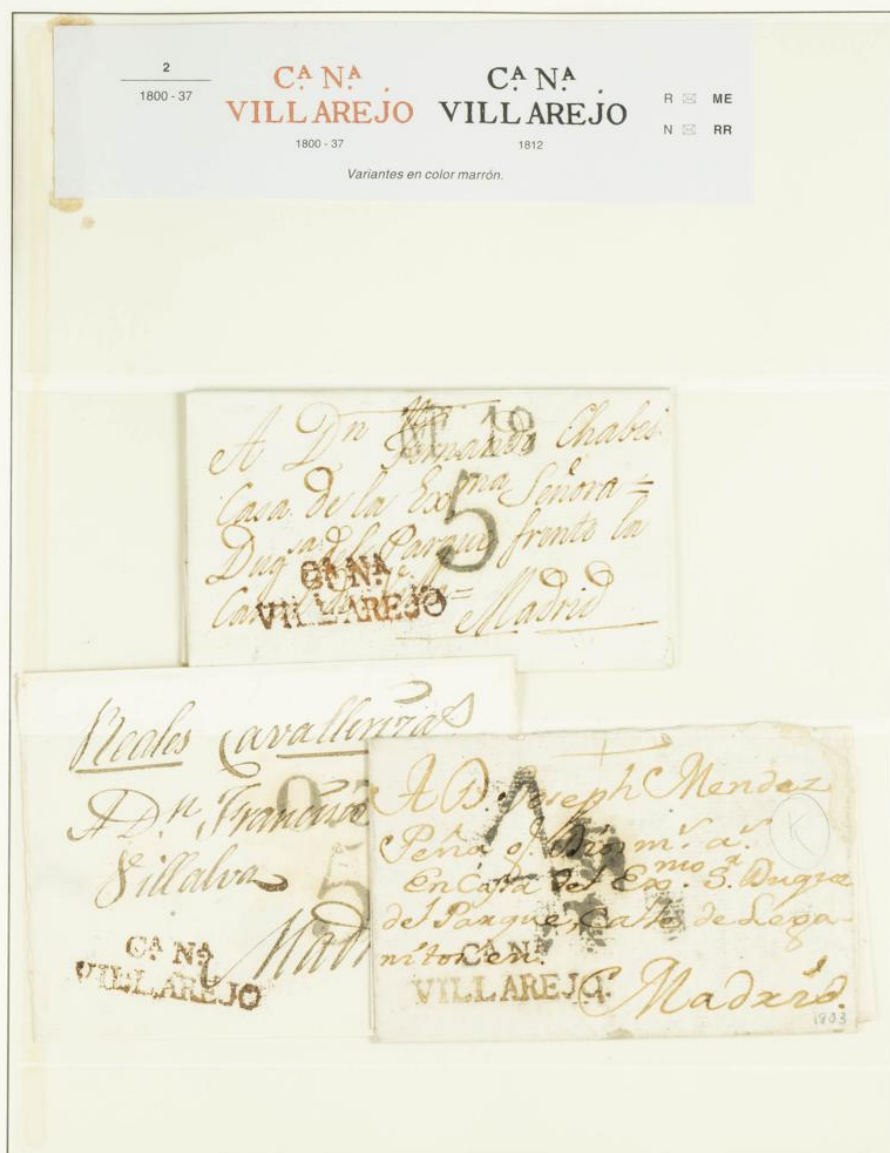 2
1800 - 37
Cᴬ. Nᴬ.
VILLAREJO
1800 - 37
Cᴬ. Nᴬ.
VILLAREJO
1812
R ME
N RR
Variantes en color marrón.
A Dn Fernando Chabes
Casa de la Exma Señora =
Duqsa del Parque frente la
5
Cᴬ. Nᴬ.
VILLAREJO
Madrid
Reales Cavallerizas
A Dn Francisco
Villalva
5
Cᴬ Nᴬ
VILLAREJO
A D. Joseph Mendez
Peña q. Dios m.s a.s
En Casa del Exmo. S.r Duque
del Parque, Calle de Lega-
nitos en.
Cᴬ Nᴬ
VILLAREJO.
Madrid.
1803
K